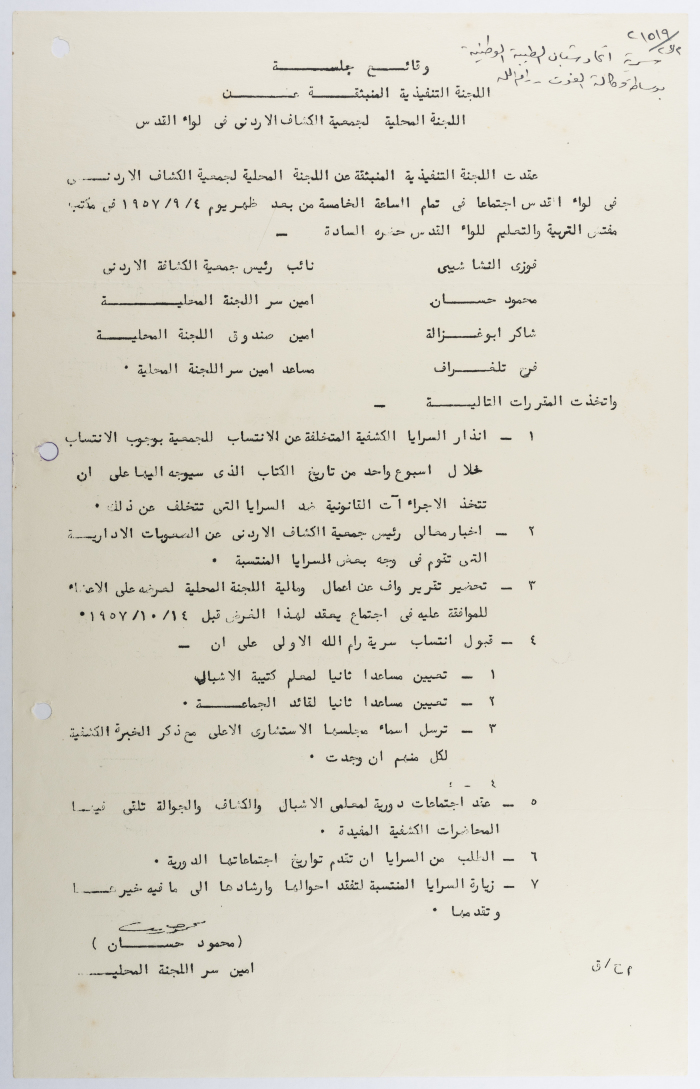 ٢١٥١٩
سرية اتحاد شبان الطيبة الوطنية
بوساطة وكالة الغوث - رام الله
وقائع جلسة
اللجنة التنفيذية المنبثقة عن
اللجنة المحلية لجمعية الكشاف الاردنى فى لواء القدس
عقدت اللجنة التنفيذية المنبثقة عن اللجنة المحلية لجمعية الكشاف الاردنى
فى لواء القدس اجتماعا فى تمام الساعة الخامسة من بعد ظهر يوم ١٩٥٧/٩/٤ فى مكتب
مفتش التربية والتعليم للواء القدس حضره السادة -
فوزى النشاشيبى نائب رئيس جمعية الكشافة الاردنى
محمود حسان امين سر اللجنة المحلية
شاكر ابوغزالة امين صندوق اللجنة المحلية
فرح تلغراف مساعد امين سر اللجنة المحلية ٠
واتخذت المقررات التالية -
١ - انذار السرايا الكشفية المتخلفة عن الانتساب للجمعية بوجوب الانتساب
خلال اسبوع واحد من تاريخ الكتاب الذى سيوجه اليها على ان
تتخذ الاجراءآت القانونية ضد السرايا التى تتخلف عن ذلك ٠
٢ - اخبار معالى رئيس جمعية الكشاف الاردنى عن الصعوبات الادارية
التى تقوم فى وجه بعض السرايا المنتسبة ٠
٣ - تحضير تقرير واف عن اعمال ومالية اللجنة المحلية لعرضه على الاعضاء
للموافقة عليه فى اجتماع يعقد لهذا الغرض قبل ١٩٥٧/١٠/١٤ ٠
٤ - قبول انتساب سرية رام الله الاولى على ان -
١ - تعيين مساعدا ثانيا لمعلم كتيبة الاشبال
٢ - تعيين مساعدا ثانيا لقائد الجماعة ٠
٣ - ترسل اسماء مجلسها الاستشارى الاعلى مع ذكر الخبرة الكشفية
لكل منهم ان وجدت ٠
٤ -
٥ - عقد اجتماعات دورية لمعلمى الاشبال والكشاف والجوالة تلقى فيها
المحاضرات الكشفية المفيدة ٠
٦ - الطلب من السرايا ان تقدم تواريخ اجتماعاتها الدورية ٠
٧ - زيارة السرايا المنتسبة لتفقد احوالها وارشادها الى ما فيه خيرها
وتقدمها ٠
(محمود حسان)
امين سر اللجنة المحلية
م ح/ق